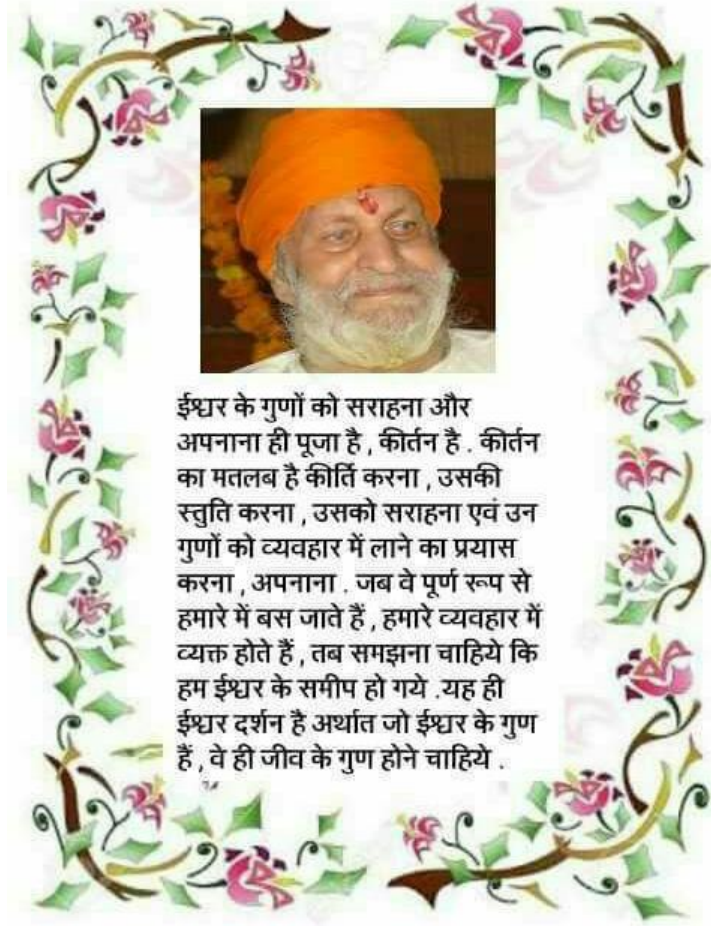 ईश्वर के गुणों को सराहना और
अपनाना ही पूजा है , कीर्तन है . कीर्तन
का मतलब है कीर्ति करना , उसकी
स्तुति करना , उसको सराहना एवं उन
गुणों को व्यवहार में लाने का प्रयास
करना , अपनाना . जब वे पूर्ण रूप से
हमारे में बस जाते हैं , हमारे व्यवहार में
व्यक्त होते हैं , तब समझना चाहिये कि
हम ईश्वर के समीप हो गये .यह ही
ईश्वर दर्शन है अर्थात जो ईश्वर के गुण
हैं , वे ही जीव के गुण होने चाहिये .